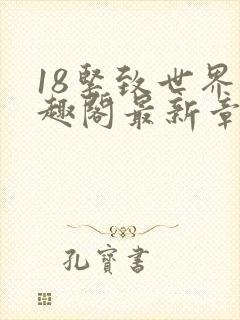 18坚致世界
趣阁最新章
孔寶書